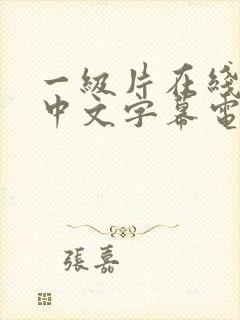 一級片在綫
中文字幕電
張嘉